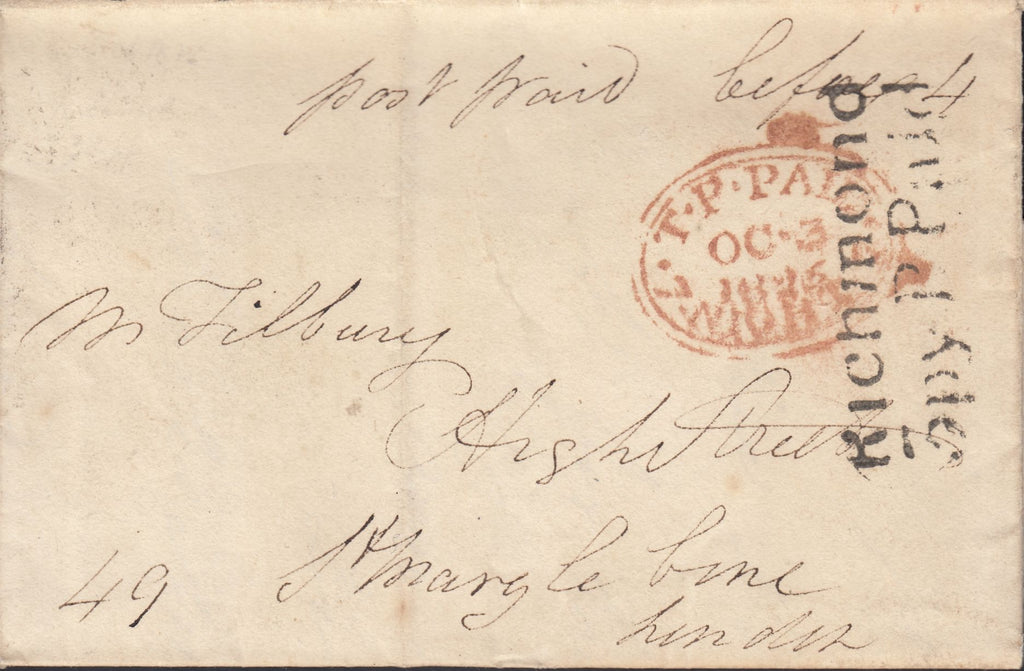 post paid before 4
T.P.PAID
OC·3
Richmond
Py P Paid
Mr Tilbury
High Street
49
St Mary le bone
London